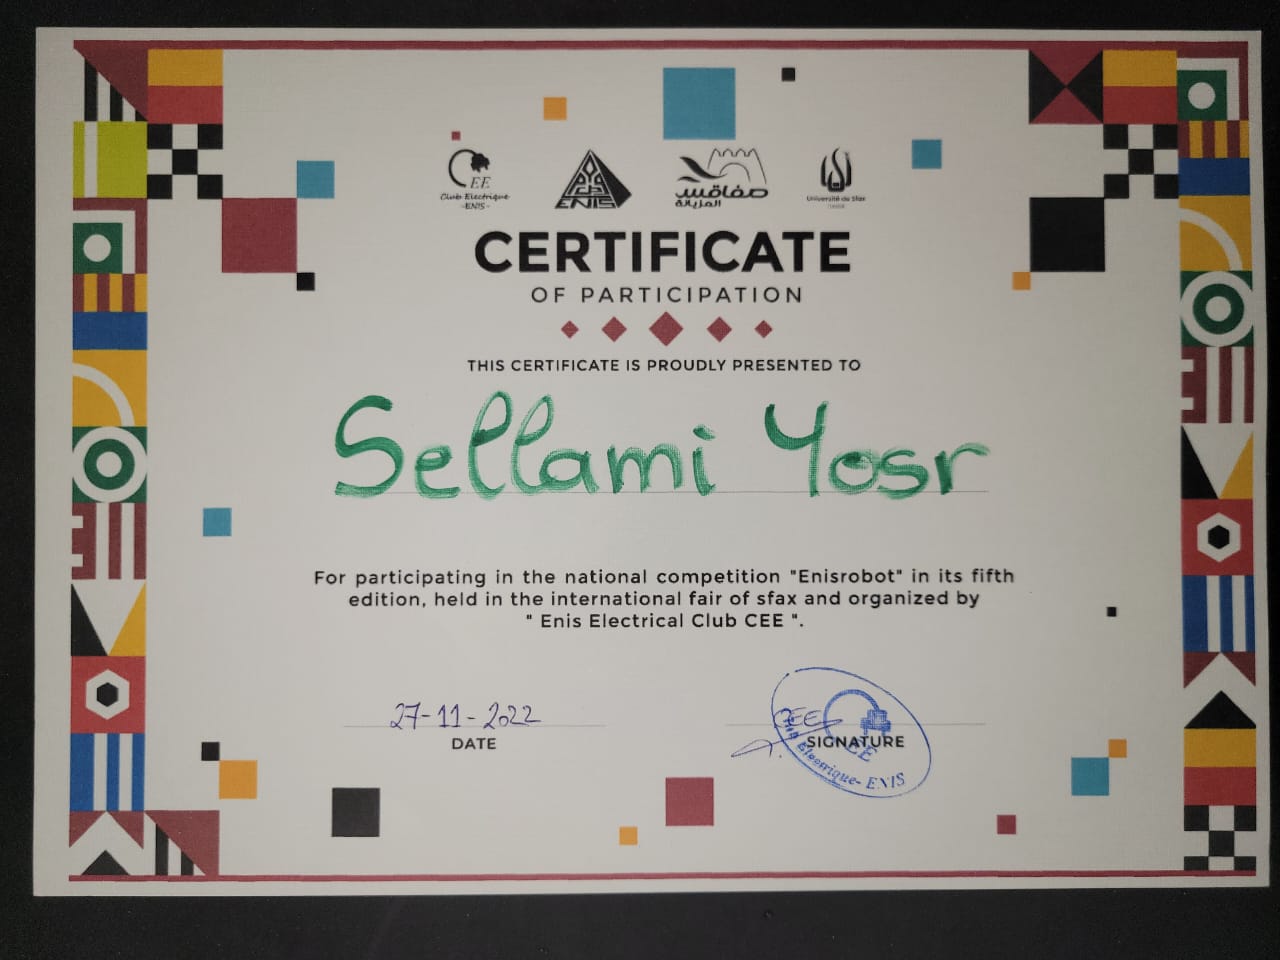 CEE
Club Electrique
-ENIS-
ENIS
صفاقس
المزيانة
Université de Sfax
CERTIFICATE
OF PARTICIPATION
THIS CERTIFICATE IS PROUDLY PRESENTED TO
Sellami Yosr
For participating in the national competition "Enisrobot" in its fifth
edition, held in the international fair of sfax and organized by
" Enis Electrical Club CEE ".
27-11-2022
DATE
CEE
SIGNATURE
CEE
Club Electrique- ENIS